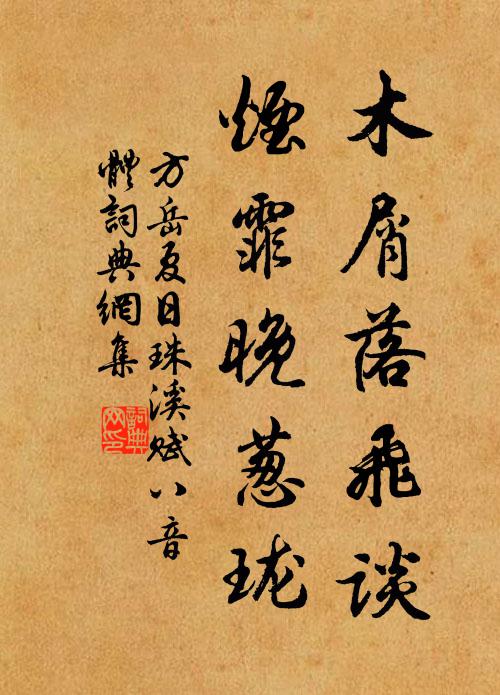 木屑落飛談
煙霏晚葱瓏
方岳夏日珠溪賦八音
體詞典網集
詞典網印